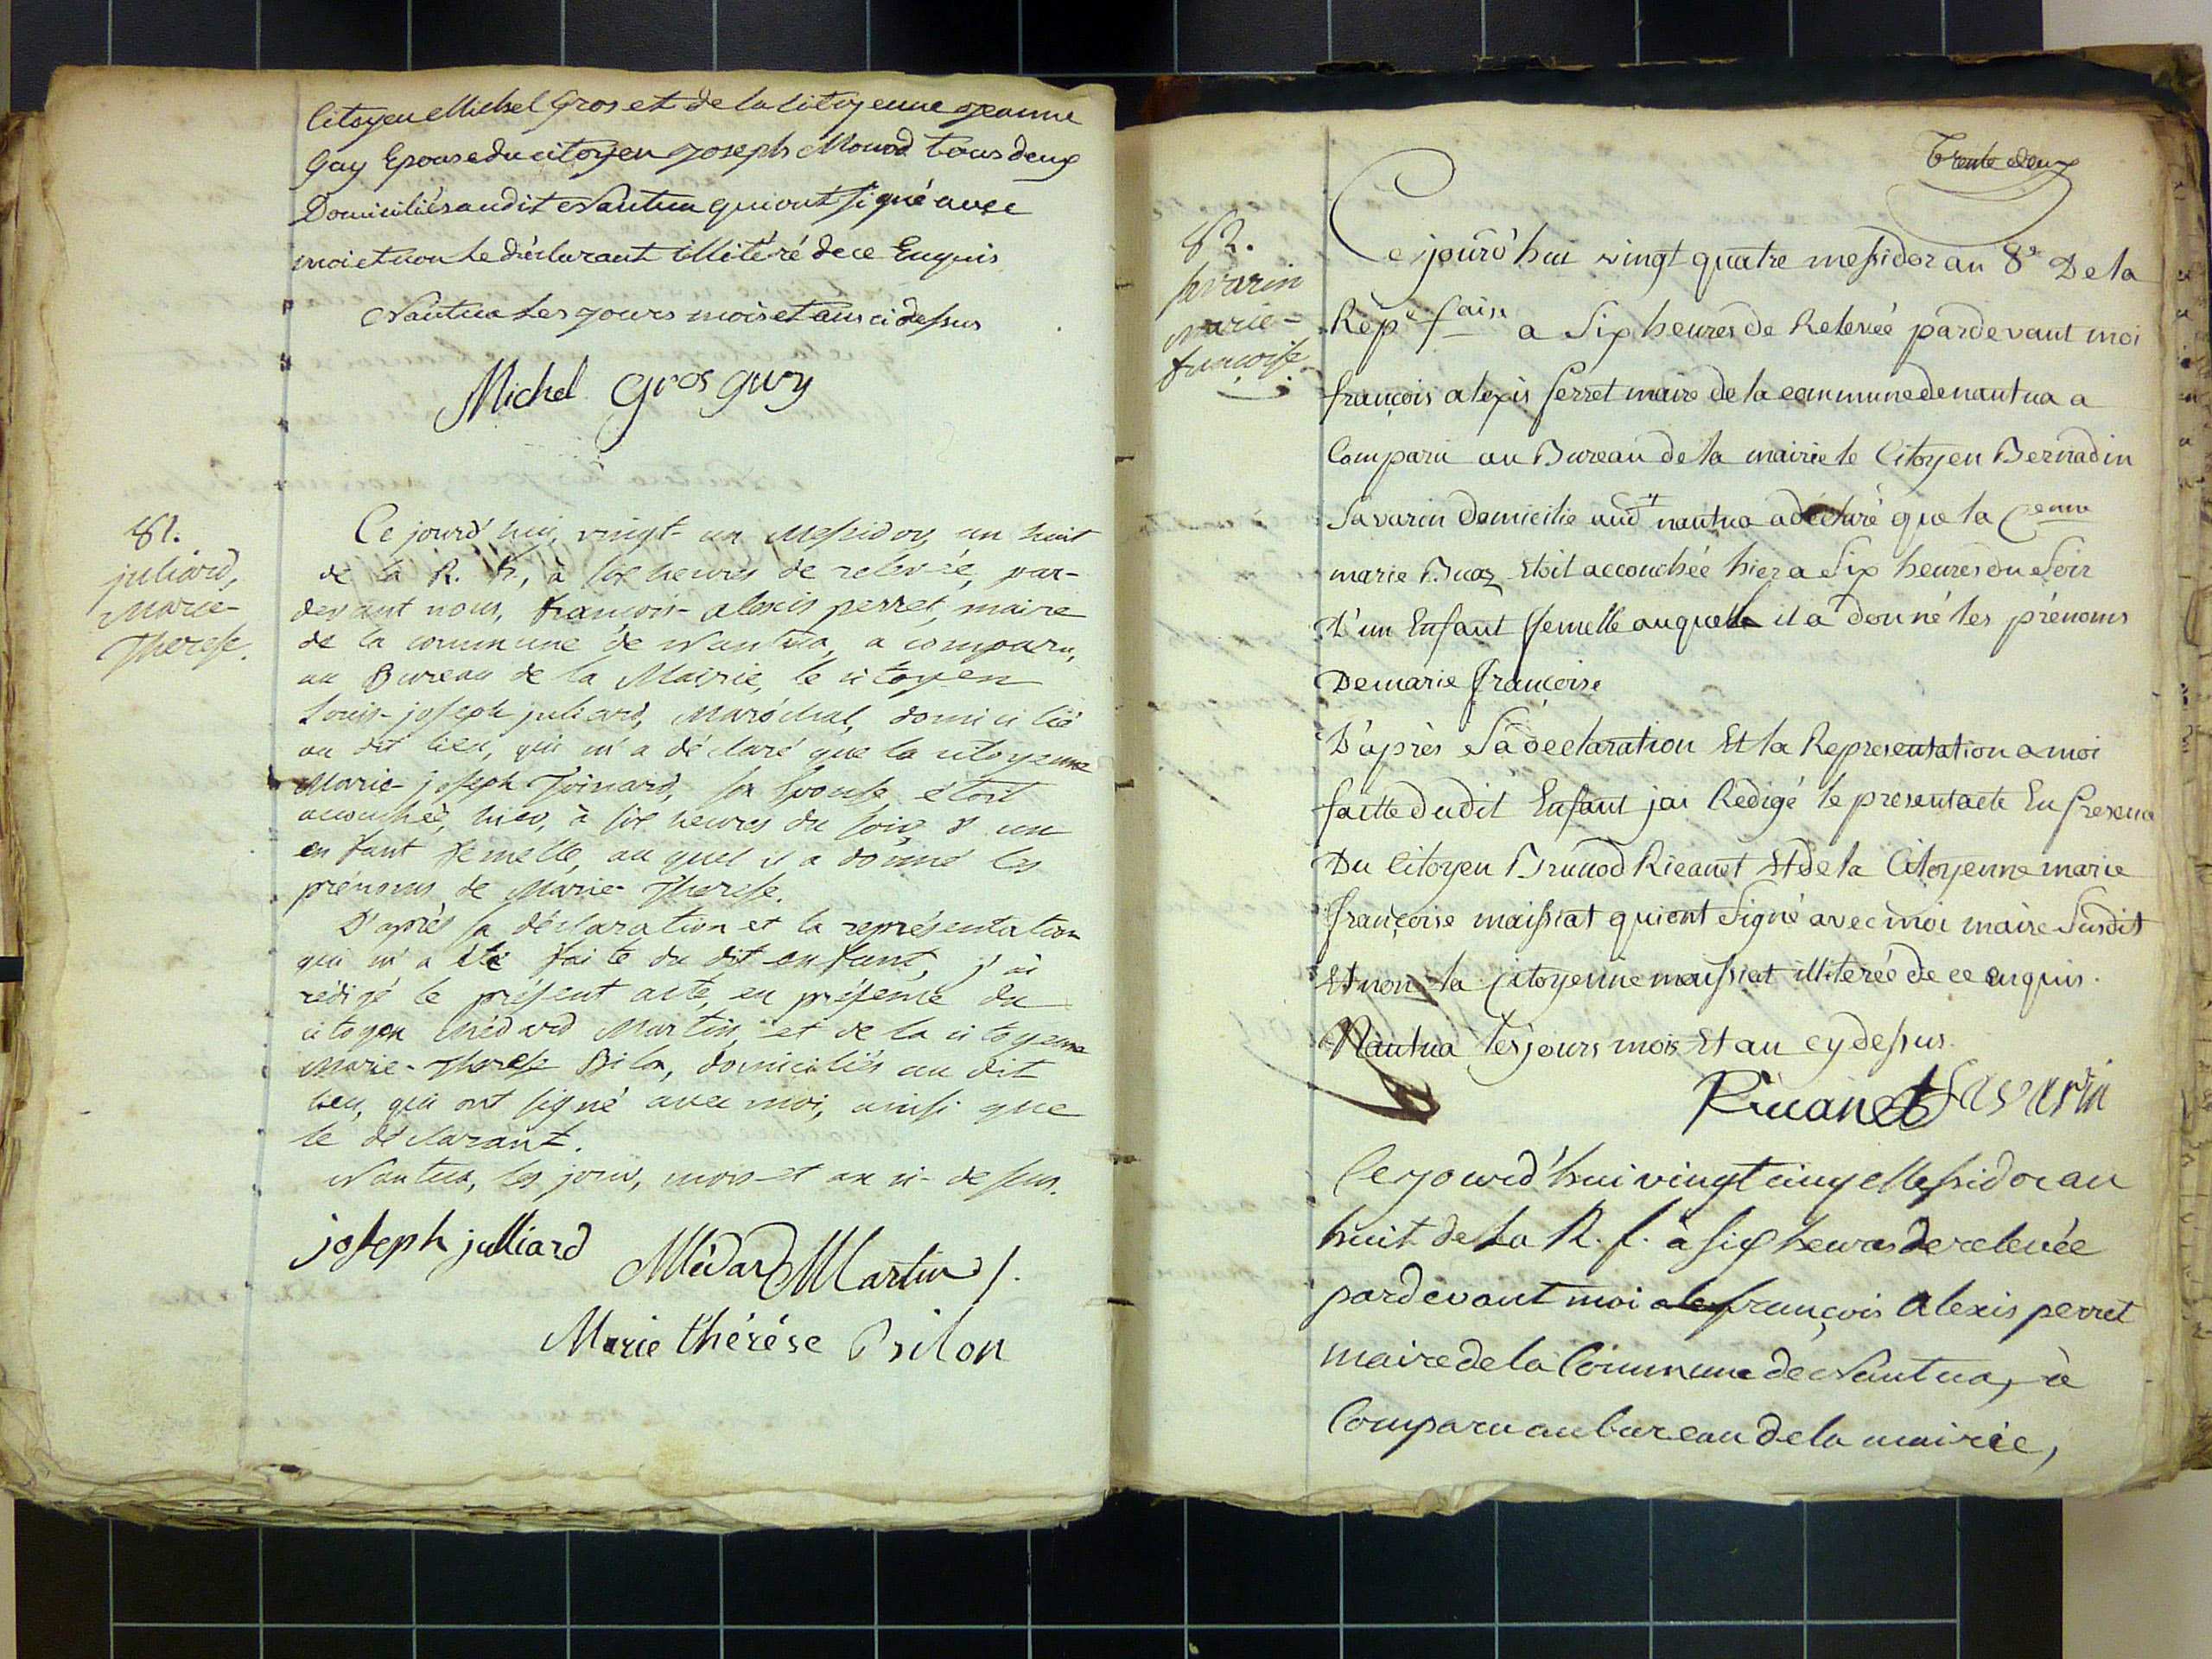 Citoyen Michel Gros et de la Citoyenne Jeanne
Gay Epouse du citoyen Joseph Monod tous deux
Domiciliés audit Nantua qui ont signé avec
moi et non le déclarant illitéré de ce Enquis
Nantua les jours mois et an ci dessus
Michel Gros guy
81.
juliard,
Marie-
Therese.
Ce jourd'huy, vingt-un Messidor, an huit
de la R. f., à six heures de relevée, par-
devant nous, françois-alexis perret, maire
de la commune de Nantua, a comparu,
au Bureau de la Mairie, le citoyen
Louis-joseph juliard, Maréchal, domicilié
au dit lieu, qui m'a déclaré que la citoyenne
Marie-joseph sa Epouse étoit
accouchée, hier, à six heures du soir, d'un
enfant femelle, au quel il a donné les
prénoms de Marie-Therese.
D'après sa déclaration et la représentation
qui m'a été faite du dit enfant, j'ai
rédigé le présent acte, en présence du
citoyen Médard Martin, et de la citoyenne
Marie-Therese domiciliés au dit
lieu, qui ont signé avec moi, ainsi que
le déclarant.
Nantua, les jour, mois et an ci-dessus.
joseph julliard Médard Martin
Marie thérése
Trente deux
82.
savarin
marie-
francoise
Ce jourd'hui vingt quatre messidor an 8e De la
Repe faise a Six heures de Relevée pardevant moi
françois alexis perret maire de la commune de nantua a
Comparu au Bureau de la mairie le Citoyen Bernadin
Savarin domicilie audt nantua a déclaré que la Cenne
marie Buoz Etoit accouchée hier a Six heures du Soir
D'un Enfant femelle auquelle il a donné les prénoms
De marie françoise
D'après Sa declaration Et la Representation a moi
faitte dudit Enfant jai Redigé le present acte En presence
Du Citoyen Brunod Ricanet Et de la Citoyenne marie
françoise maissiat qui ont Signé avec moi maire Susdit
Et non la Citoyenne maissiat illiterée de ce enquis.
Nantua les jours mois Et an cy dessus.
Ricanet Savarin
Ce jourd'hui vingt cinq Messidor an
huit de la R. f. à six heures de relevée
pardevant moi ale françois Alexis perret
maire de la Commune de Nantua, à
Comparu au bureau de la mairie,